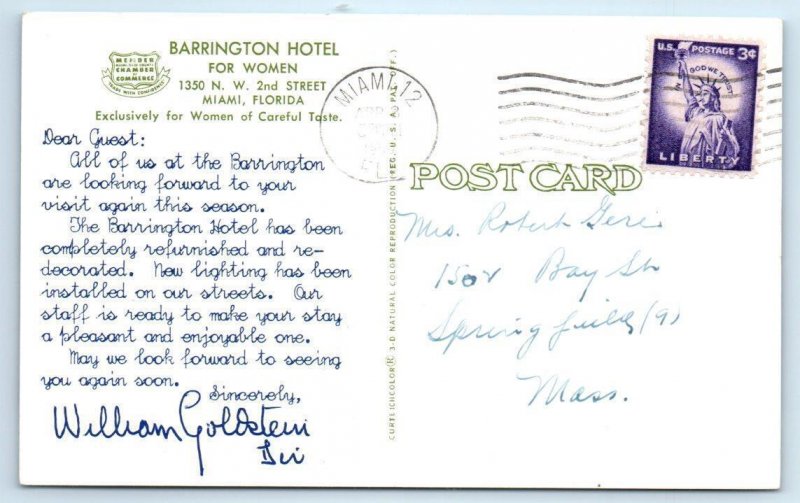 MEMBER
CHAMBER
OF
COMMERCE
TRADE WITH CONFIDENCE
BARRINGTON HOTEL
FOR WOMEN
1350 N. W. 2nd STREET
MIAMI, FLORIDA
Exclusively for Women of Careful Taste.
Dear Guest:
All of us at the Barrington
are looking forward to your
visit again this season.
The Barrington Hotel has been
completely refurnished and re-
decorated. New lighting has been
installed on our streets. Our
staff is ready to make your stay
a pleasant and enjoyable one.
May we look forward to seeing
you again soon.
Sincerely,
William Goldstein
CURTEICHCOLOR® 3-D NATURAL COLOR REPRODUCTION (REG. U. S. A. PAT. OFF.)
MIAMI 12
U.S. POSTAGE 3¢
IN GOD WE TRUST
LIBERTY
POST CARD
Mrs. Robert
Bay St
Springfield (9)
Mass.